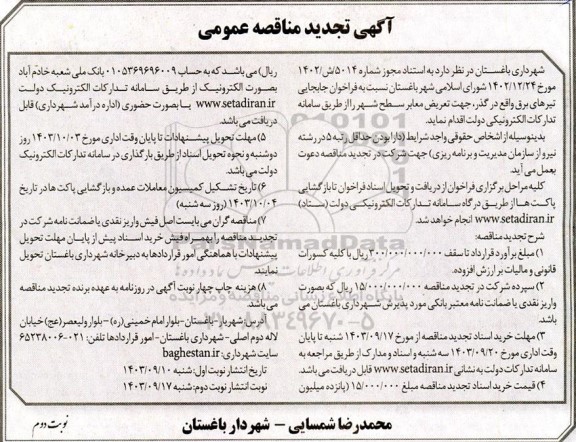 آگهی تجدید مناقصه عمومی
شهرداری باغستان در نظر دارد به استناد مجوز شماره ۵۰۱۴/ش/۱۴۰۲
مورخ ۱۴۰۲/۱۲/۲۴ شورای اسلامی شهر باغستان نسبت به فراخوان جابجایی
تیرهای برق واقع در گذر، جهت تعریض معابر سطح شهر را از طریق سامانه
تدارکات الکترونیکی دولت اقدام نماید.
بدینوسیله از اشخاص حقوقی واجد شرایط (دارا بودن حداقل رتبه ۵ در رشته
نیرو از سازمان مدیریت و برنامه ریزی) جهت شرکت در تجدید مناقصه دعوت
بعمل می آید.
کلیه مراحل برگزاری فراخوان از دریافت و تحویل اسناد فراخوان تا بازگشایی
پاکت ها از طریق درگاه سامانه تدارکات الکترونیکی دولت (ستاد)
www.setadiran.ir انجام خواهد شد.
شرح تجدید مناقصه:
۱) مبلغ برآورد قرارداد تا سقف ۳۰۰/۰۰۰/۰۰۰/۰۰۰ ریال با کلیه کسورات
قانونی و مالیات بر ارزش افزوده.
۲) سپرده شرکت در تجدید مناقصه ۱۵/۰۰۰/۰۰۰/۰۰۰ ریال که بصورت
واریز نقدی یا ضمانت نامه معتبر بانکی مورد پذیرش شهرداری باغستان می
باشد.
۳) مهلت خرید اسناد تجدید مناقصه از مورخ ۱۴۰۳/۰۹/۱۷ شنبه تا پایان
وقت اداری مورخ ۱۴۰۳/۰۹/۲۰ سه شنبه و اسناد و مدارک از طریق مراجعه به
سامانه تدارکات دولت به نشانی www.setadiran.ir قابل دریافت می باشد.
۴) قیمت خرید اسناد تجدید مناقصه مبلغ ۱۵/۰۰۰/۰۰۰ (پانزده میلیون
ریال) می باشد که به حساب ۰۱۰۵۳۶۹۶۹۶۰۰۹ بانک ملی شعبه خادم آباد
بصورت الکترونیک از طریق سامانه تدارکات الکترونیک دولت
www.setadiran.ir یا بصورت حضوری (اداره درآمد شهرداری) قابل
دریافت می باشد.
۵) مهلت تحویل پیشنهادات تا پایان وقت اداری مورخ ۱۴۰۳/۱۰/۰۳ روز
دوشنبه و نحوه تحویل اسناد از طریق بارگذاری در سامانه تدارکات الکترونیک
دولت می باشد.
۶) تاریخ تشکیل کمیسیون معاملات عمده و بازگشایی پاکت ها در تاریخ
۱۴۰۳/۱۰/۰۴ (روز سه شنبه)
۷) مناقصه گران می بایست اصل فیش واریز نقدی یا ضمانت نامه شرکت در
تجدید مناقصه را بهمراه فیش خرید اسناد پیش از پایان مهلت تحویل
پیشنهادات با هماهنگی امور قراردادها به دبیرخانه شهرداری باغستان تحویل
نمایند
۸) هزینه چاپ چهار نوبت آگهی در روزنامه به عهده برنده تجدید مناقصه
می باشد.
آدرس: شهریار- باغستان- بلوار امام خمینی (ره)- بلوار ولیعصر (عج) خیابان
لاله دوم اصلی- شهرداری باغستان- امور قراردادها تلفن: ۰۲۱-۶۵۲۳۸۰۰۶
سایت شهرداری: baghestan.ir
تاریخ انتشار نوبت اول: شنبه ۱۴۰۳/۰۹/۱۰
نوبت انتشار نوبت دوم: شنبه ۱۴۰۳/۰۹/۱۷
محمدرضا شمسایی - شهردار باغستان
نوبت دوم